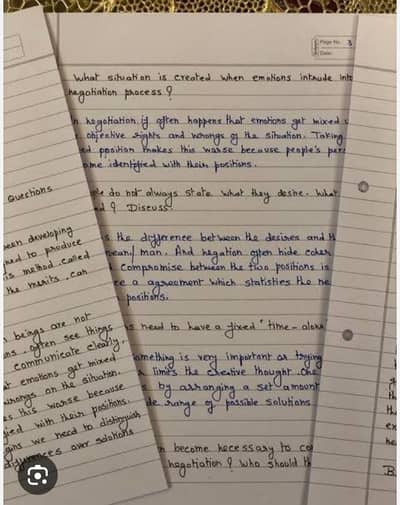 Page No. 3
Date:
What situation is created when emotions intrude into
negotiation process ?
negotiation it often happens that emotions get mixed
objective rights and wrongs of the situation. Taking
position makes this worse because people's
identified with their positions.
do not always state what they desire. What
? Discuss.
is the difference between the desires and
man. And negation often hide
compromise between the two positions is
a agreement which statisties the
positions.
need to have a fixed "time-
something is very important as trying
limits the creative thought. One
by arranging a set amount
range of possible solutions
become necessary to
negotiation ? Who should
Questions
been developing
to produce
is method called
the merits, can
beings are not
often see things
communicate clearly.
emotions get mixed
wrongs on the situation.
this worse because
with their positions.
we need to distinguish
differences over solutions